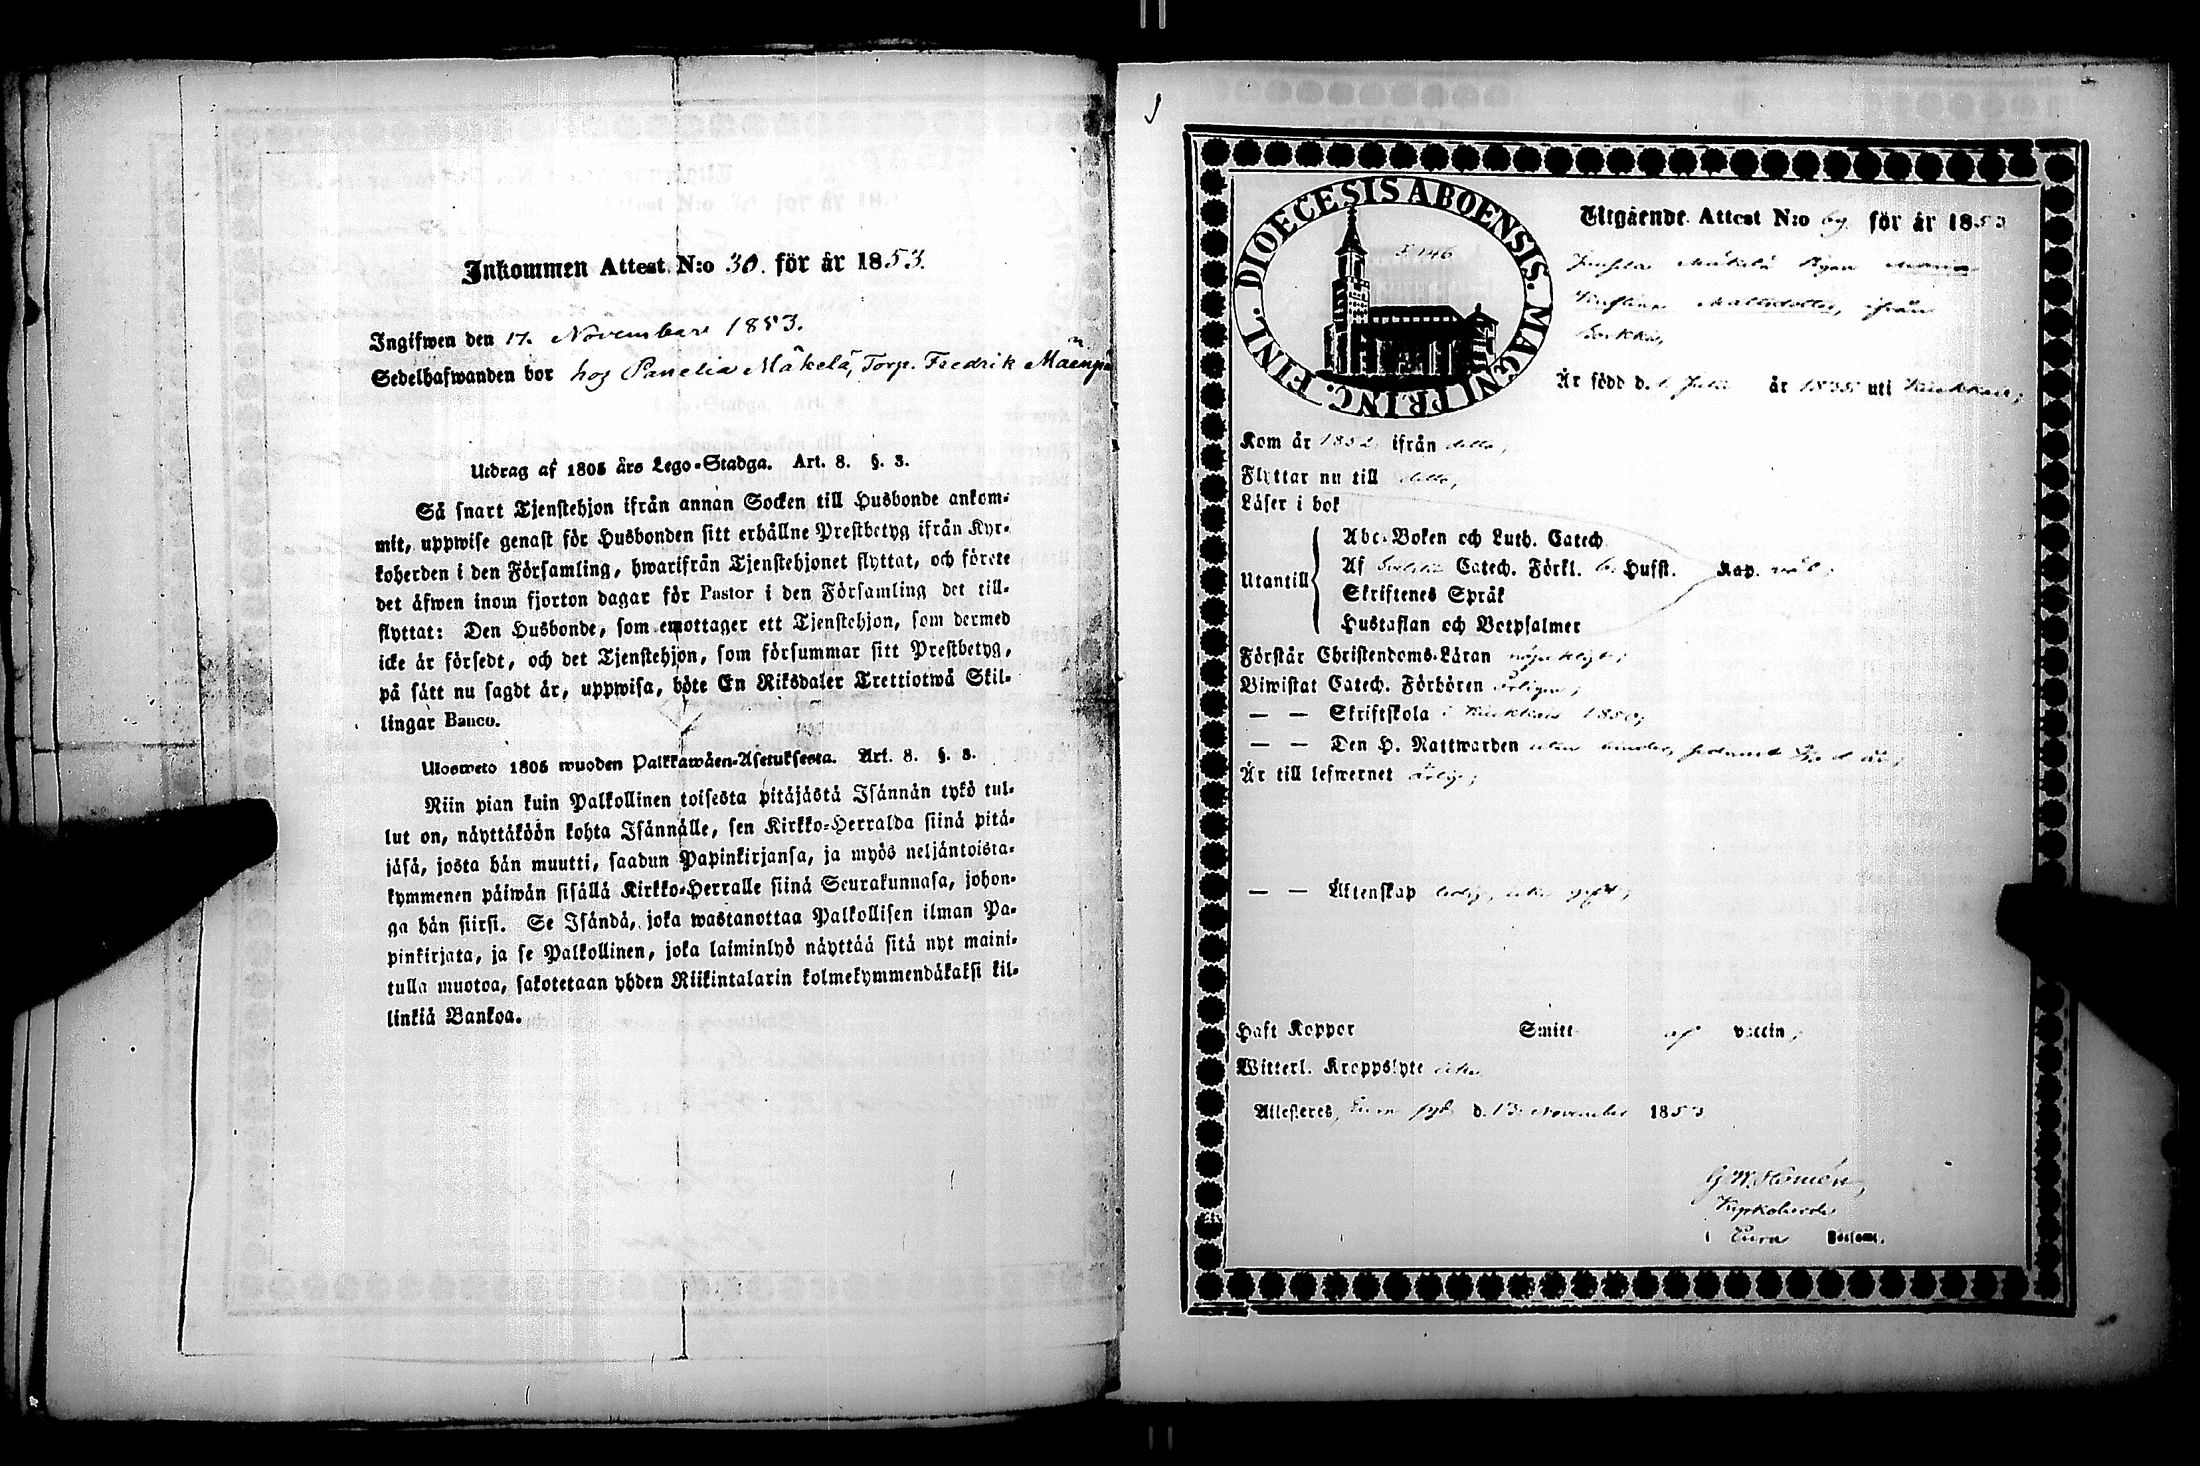 Inkommen Attest N:o 30. för år 1853.
Ingifwen den 17. November 1853.
Sedelhafwanden bor hos Panelia Mäkelä, Torp. Fredrik Mäenpä
Utdrag af 1805 års Lego-Stadga. Art. 8. §. 3.
Så snart Tjenstehjon ifrån annan Socken till Husbonde ankom-
mit, uppwise genast för Husbonden sitt erhållne Prestbetyg ifrån Kyr-
koherden i den Församling, hwarifrån Tjenstehjonet flyttat, och förete
det äfwen inom fjorton dagar för Pastor i den Församling det till-
flyttat: Den Husbonde, som emottager ett Tjenstehjon, som dermed
icke är försedt, och det Tjenstehjon, som försummar sitt Prestbetyg,
på sätt nu sagdt är, uppwisa, böte En Riksdaler Trettiotwå Skil-
lingar Banco.
Ulosweto 1805 wuoden Palkkawäen-Asetuksesta. Art. 8. §. 3.
Niin pian kuin Palkollinen toisesta pitäjästä Isännän tykö tul-
lut on, näyttäköön kohta Isännälle, sen Kirkko-Herralda siinä pitä-
jäsä, josta hän muutti, saadun Papinkirjansa, ja myös neljäntoista-
kymmenen päiwän sisällä Kirkko-Herralle siinä Seurakunnasa, johon-
ga hän siirsi. Se Isändä, joka wastanottaa Palkollisen ilman Pa-
pinkirjata, ja se Palkollinen, joka laiminlyö näyttää sitä nyt maini-
tulla muotoa, sakotetaan yhden Riikintalarin kolmekymmendäkaksi kil-
linkiä Bankoa.
DIOECESIS ABOENSIS. MAGNI PRINC. FINL.
Utgående Attest N:o 69. för år 1853
Mäkelä
Mattsdotter, ifrån
Är född d. 1 Juli år 1835 uti Kiukkais,
Kom år 1852 ifrån detto,
Flyttar nu till detto,
Läser i bok
Utantill
Abc-Boken och Luth. Catech.
Af Catech. Förkl. Husst. Kap. väl,
Skriftenes Språk
Hustaflan och Botpsalmer
Förstår Christendoms-Läran nöjaktigt,
Biwistat Catech. Förhören årligen,
— — Skriftskola i Kiukkais 1850,
— — Den H. Nattwarden
Är till lefwernet ärlig,
— — Äktenskap ledig, icke gift,
Haft Koppor Smitt af vaccin,
Witterl. Kroppslyte icke
Attesteras, Eura d. 13 November 1853
G W Homén,
Kyrkoherde
i Eura Förfaml.